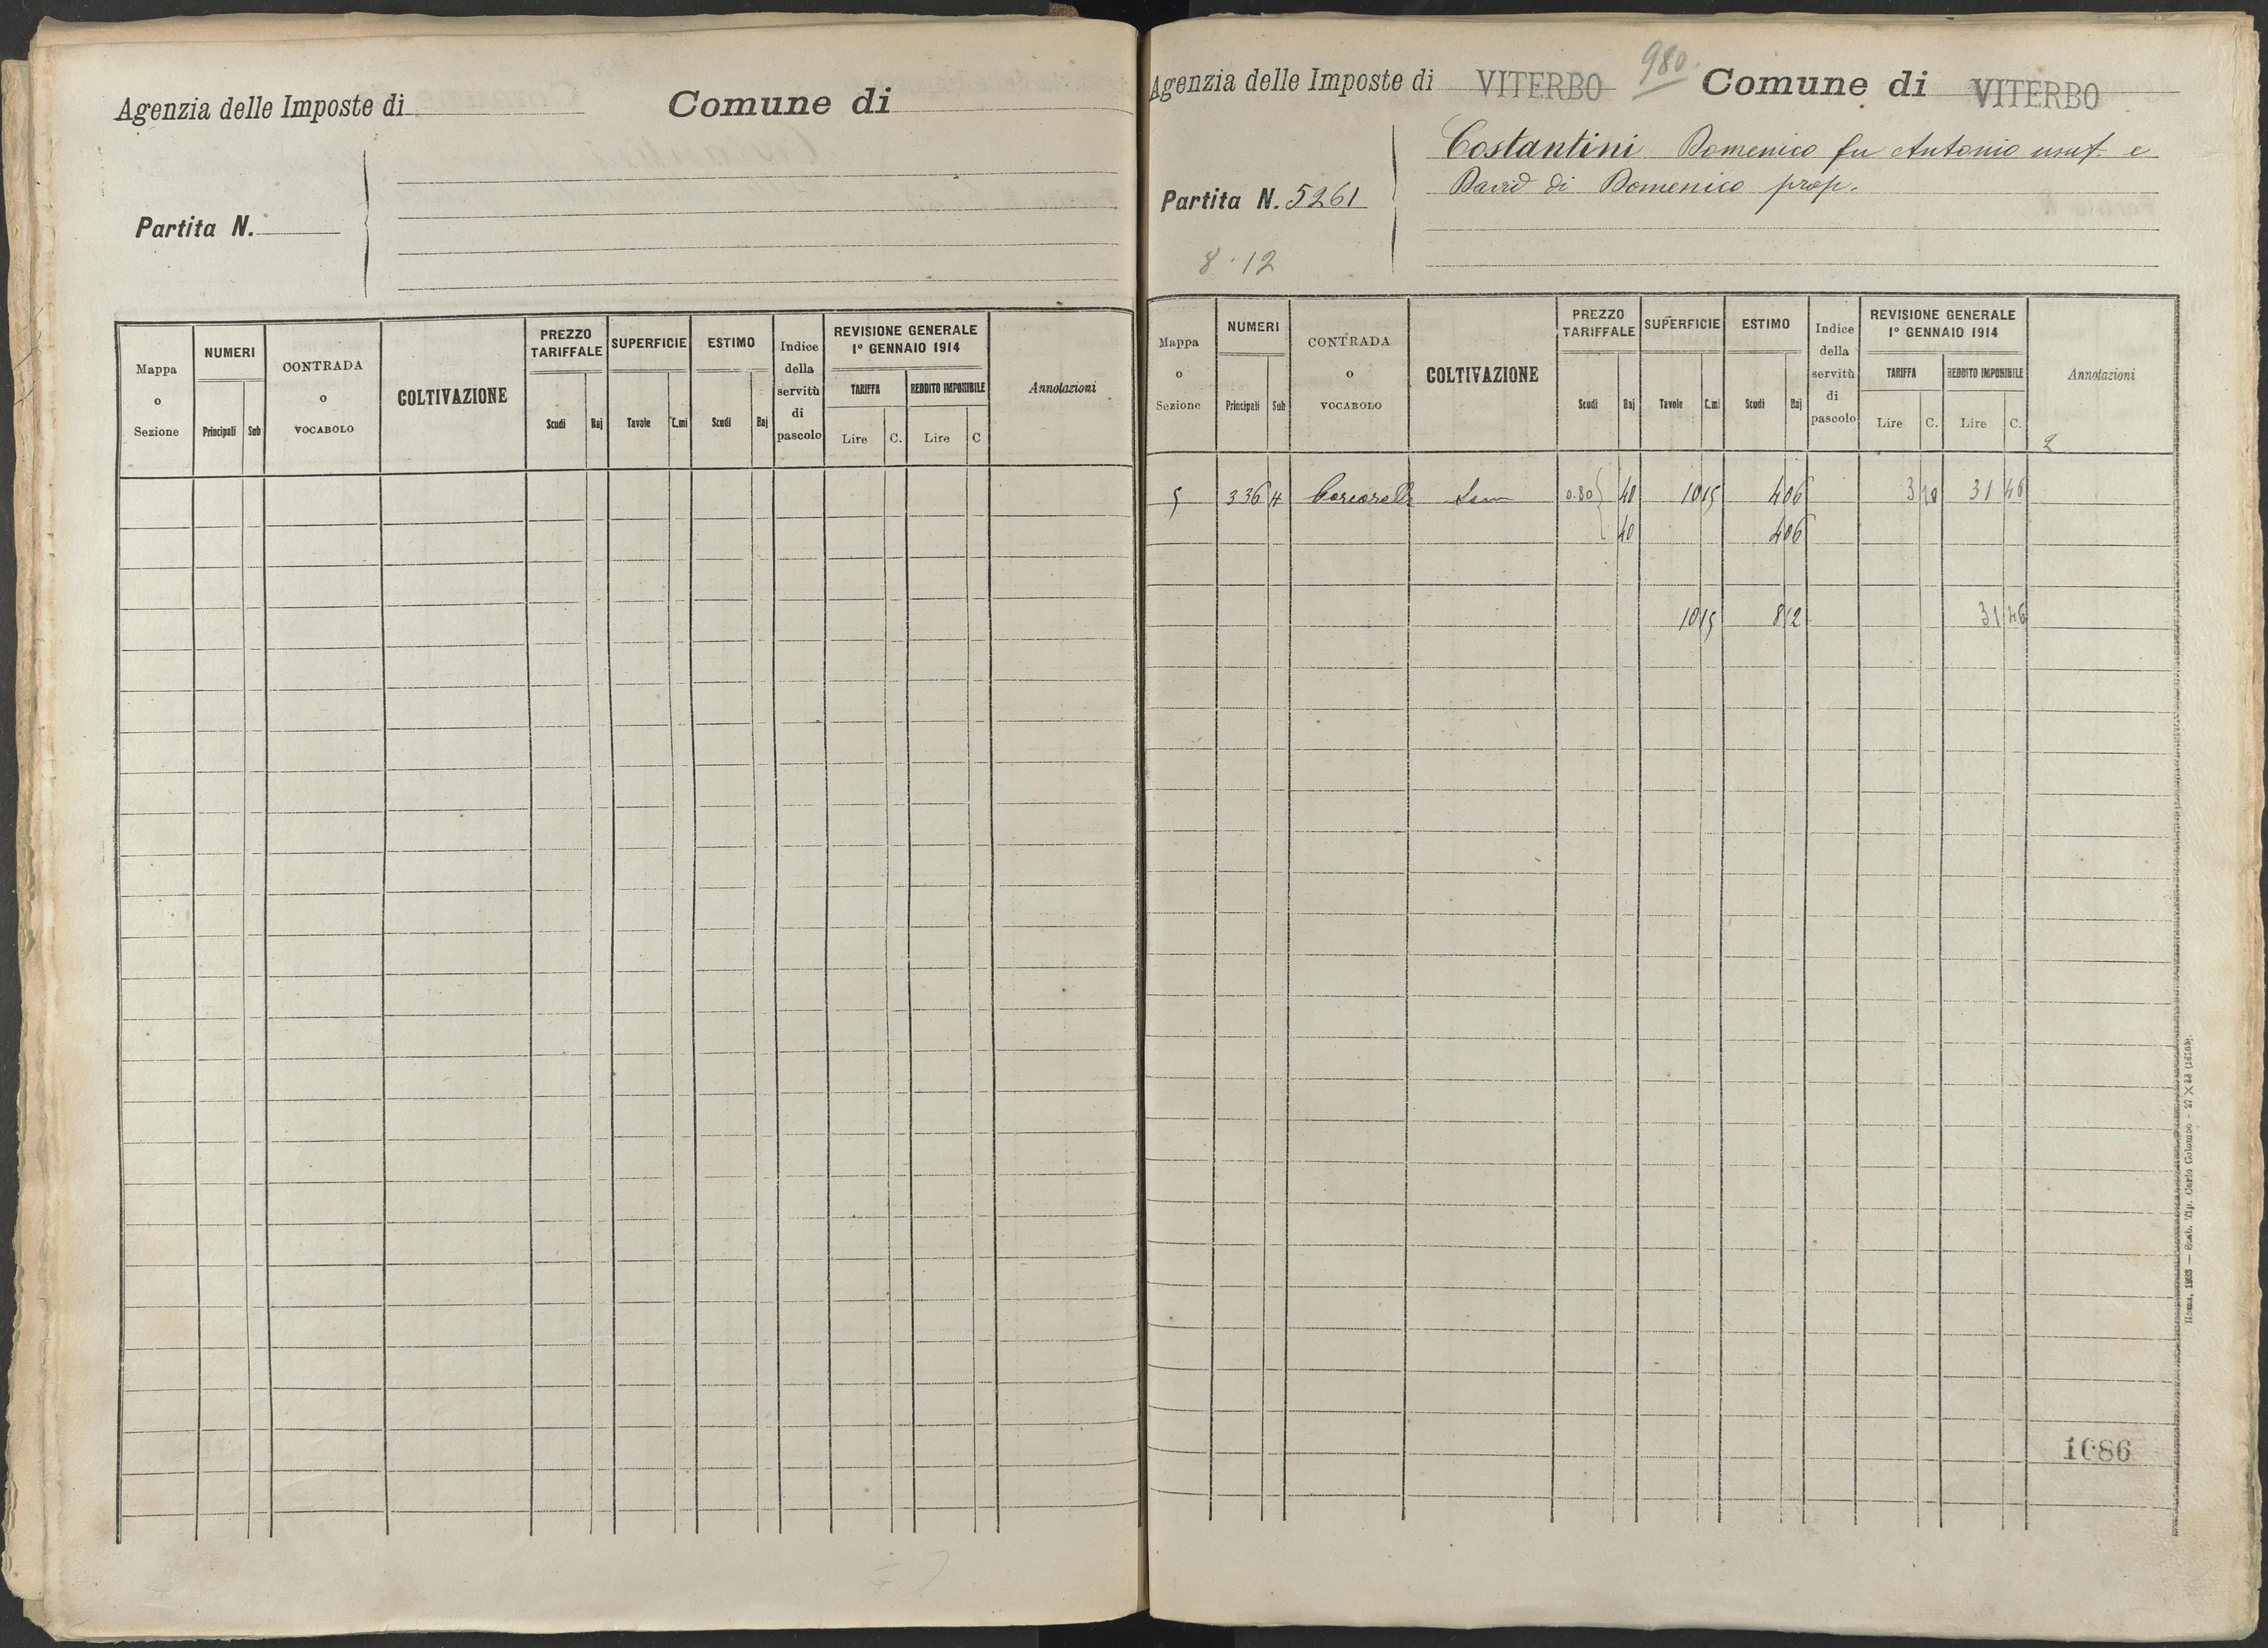 Agenzia delle Imposte di
Comune di
Partita N.
Mappa o Sezione
NUMERI
Principali Sub
CONTRADA o VOCABOLO
COLTIVAZIONE
PREZZO TARIFFALE
Scudi Baj
SUPERFICIE
Tavole C.mi
ESTIMO
Scudi Baj
Indice della servitù di pascolo
REVISIONE GENERALE
1º GENNAIO 1914
TARIFFA
Lire C.
REDDITO IMPONIBILE
Lire C
Annotazioni
980
Agenzia delle Imposte di VITERBO Comune di VITERBO
Costantini Domenico fu Antonio usuf. e
David di Domenico prop.
Partita N. 5261
8.12
Mappa o Sezione
NUMERI
Principali Sub
CONTRADA o VOCABOLO
COLTIVAZIONE
PREZZO TARIFFALE
Scudi Baj
SUPERFICIE
Tavole C.mi
ESTIMO
Scudi Baj
Indice della servitù di pascolo
REVISIONE GENERALE
1º GENNAIO 1914
TARIFFA
Lire C.
REDDITO IMPONIBILE
Lire C.
Annotazioni
2
5 336 Sem 0.80 40 10 15 4 06 3 10 31 46
40 4 06
10 15 8 12 31 46
1086
Roma, — Stab. Tip. Carlo Colombo -